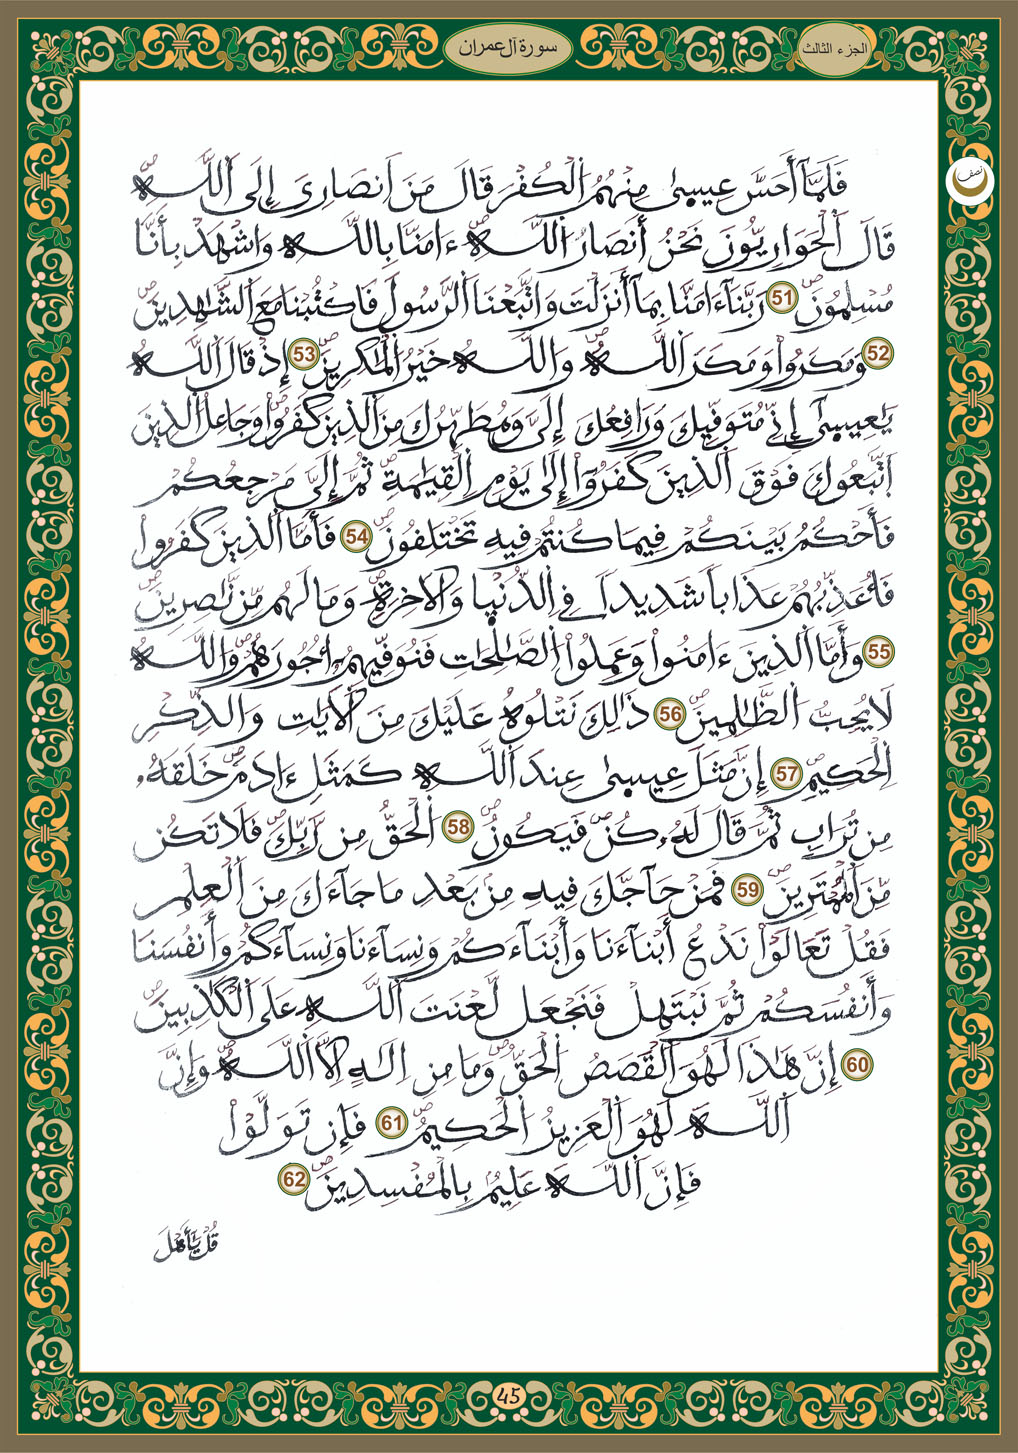 سورة آل عمران
الجزء الثالث
نصف
فَلَمَّآ أَحَسَّ عِيسىٰ مِنْهُمُ اُلْكُفْرَ قَالَ مَنَ اَنصَارِىَ إِلَى اَللَّهِۖ
قَالَ اَلْحَوَارِيُّونَ نَحْنُ أَنصَارُ اُللَّهِۖ ءَامَنَّا بِاللَّهِ وَاشْهَدْ بِأَنَّا
مُسْلِمُونَۖ 51 رَبَّنَآ ءَامَنَّا بِمَآ أَنزَلْتَ وَاتَّبَعْنَا اَلرَّسُولَ فَاكْتُبْنَا مَعَ اَلشَّٰهِدِينَۖ
52 وَمَكَرُواْ وَمَكَرَ اَللَّهُۖ وَاللَّهُ خَيْرُ اُلْمَٰكِرِينَۖ 53 إِذْ قَالَ اَللَّهُ
يَٰعِيسىٰٓ إِنِّے مُتَوَفِّيكَ وَرَافِعُكَ إِلَىَّ وَمُطَهِّرُكَ مِنَ اَلذِينَ كَفَرُواْۖ وَجَاعِلُ اُلذِينَ
اَتَّبَعُوكَ فَوْقَ اَلذِينَ كَفَرُوٓاْ إِلَىٰ يَوْمِ اِلْقِيَٰمَةِۖ ثُمَّ إِلَىَّ مَرْجِعُكُمْ
فَأَحْكُمُ بَيْنَكُمْ فِيمَا كُنتُمْ فِيهِ تَخْتَلِفُونَۖ 54 فَأَمَّا اَلذِينَ كَفَرُواْ
فَأُعَذِّبُهُمْ عَذَاباً شَدِيداً فِے اِلدُّنْيَا وَالَاخِرَةِۖ وَمَا لَهُم مِّن نَّٰصِرِينَۖ
55 وَأَمَّا اَلذِينَ ءَامَنُواْ وَعَمِلُواْ اُلصَّٰلِحَٰتِ فَنُوَفِّيهِمُۥٓ أُجُورَهُمْۖ وَاللَّهُ
لَا يُحِبُّ اُلظَّٰلِمِينَۖ 56 ذَٰلِكَ نَتْلُوهُ عَلَيْكَ مِنَ اَلَايَٰتِ وَالذِّكْرِ
اِلْحَكِيمِۖ 57 إِنَّ مَثَلَ عِيسىٰ عِندَ اَللَّهِ كَمَثَلِ ءَادَمَۖ خَلَقَهُۥ
مِن تُرَابٍ ثُمَّ قَالَ لَهُۥ كُنۖ فَيَكُونُۖ 58 اُلْحَقُّ مِن رَّبِّكَۖ فَلَا تَكُن
مِّنَ اَلْمُمْتَرِينَۖ 59 فَمَنْ حَآجَّكَ فِيهِ مِنۢ بَعْدِ مَا جَآءَكَ مِنَ اَلْعِلْمِ
فَقُلْ تَعَالَوْاْ نَدْعُ أَبْنَآءَنَا وَأَبْنَآءَكُمْ وَنِسَآءَنَا وَنِسَآءَكُمْ وَأَنفُسَنَا
وَأَنفُسَكُمْ ثُمَّ نَبْتَهِلْ فَنَجْعَل لَّعْنَتَ اَللَّهِ عَلَى اَلْكَٰذِبِينَۖ
60 إِنَّ هَٰذَا لَهُوَ اَلْقَصَصُ اُلْحَقُّۖ وَمَا مِنِ اِلَٰهٍ اِلَّا اَللَّهُۖ وَإِنَّ
اَللَّهَ لَهُوَ اَلْعَزِيزُ اُلْحَكِيمُۖ 61 فَإِن تَوَلَّوْاْ
فَإِنَّ اَللَّهَ عَلِيمُۢ بِالْمُفْسِدِينَۖ 62
قُلْ يَٰٓأَهْلَ
45